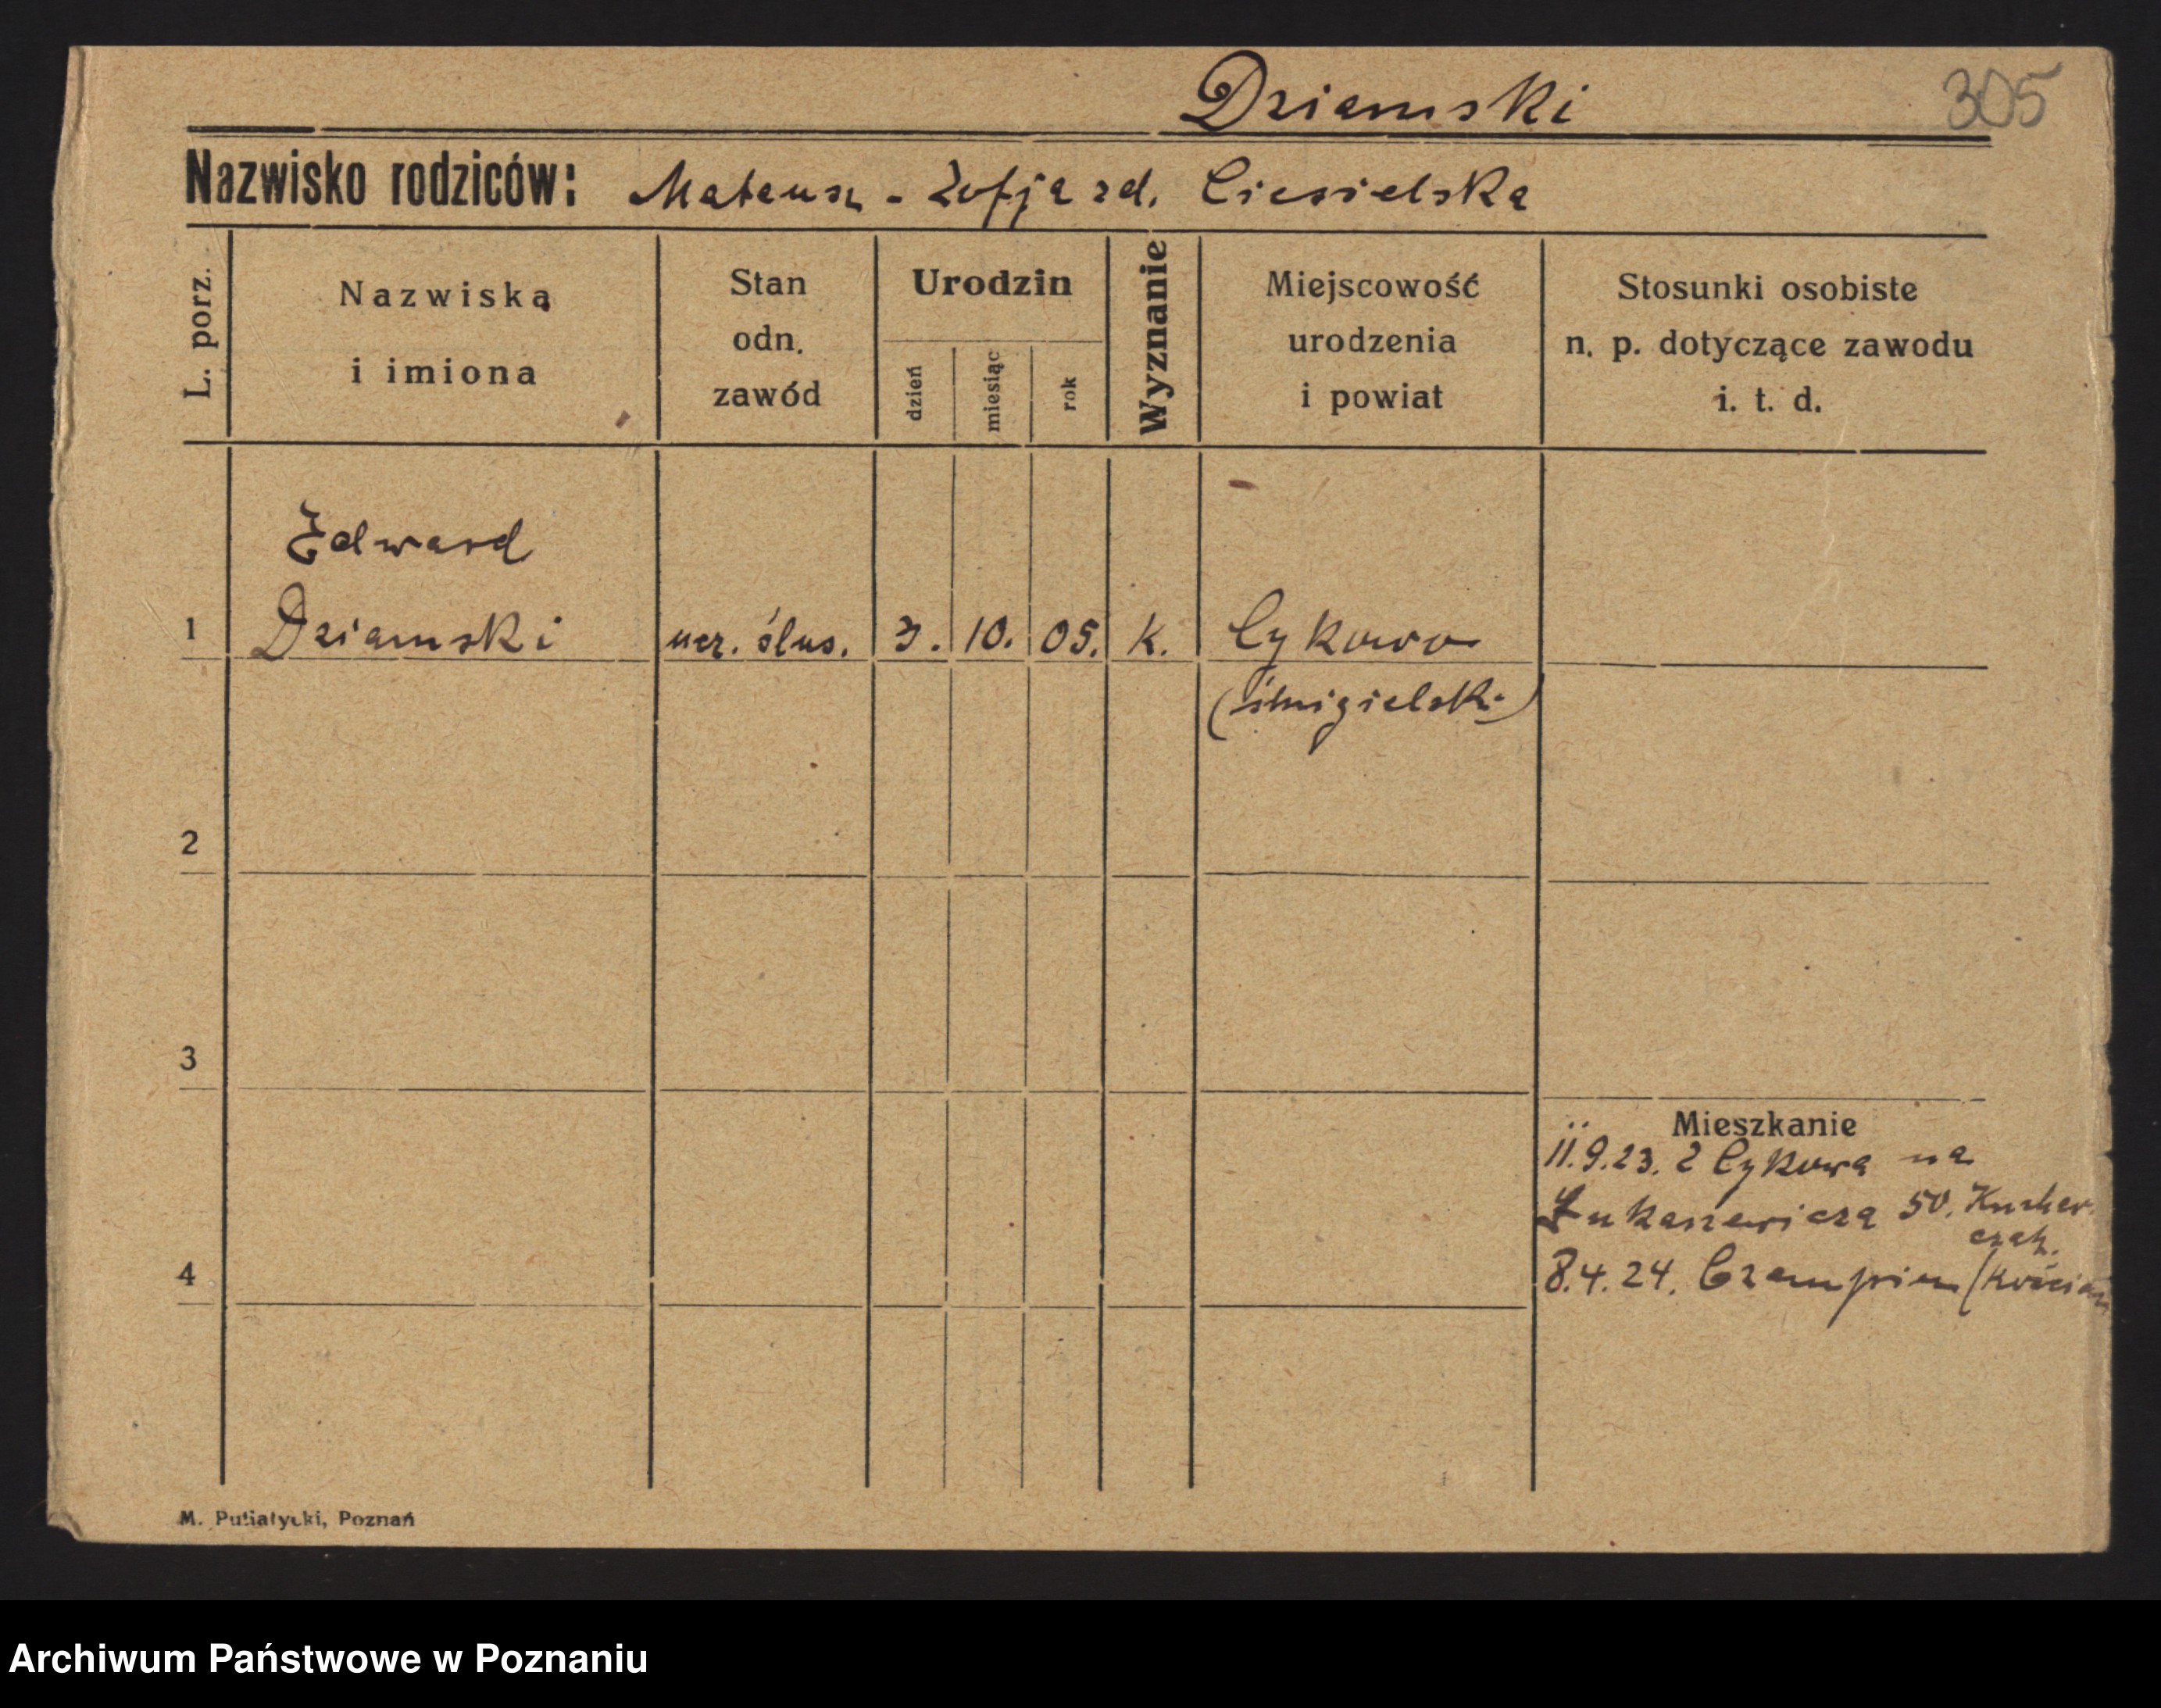 Dziamski 305
Nazwisko rodziców: Mateusz - Zofja zd. Ciesielska
L. porz.
Nazwiska
i imiona
Stan
odn.
zawód
Urodzin
dzień
miesiąc
rok
Wyznanie
Miejscowość
urodzenia
i powiat
Stosunki osobiste
n. p. dotyczące zawodu
i. t. d.
Edward
1 Dziamski ucz. ślus. 3. 10. 05. k. Cykowo
(śmigielski)
2
3
Mieszkanie
11.9.23. z Cykowa na
Łukaszewicza 50.
4 8.4.24. Czempin (Kościan
M. Putiatycki, Poznań
Archiwum Państwowe w Poznaniu